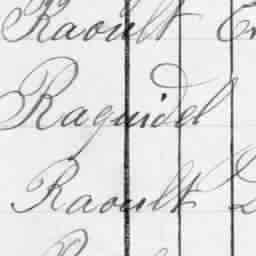 Raoult
Raguidel
Raoult